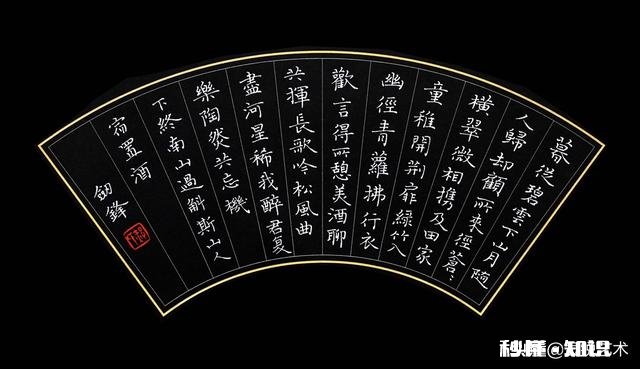 暮從碧雲下山月隨
人歸却顧所来徑蒼〻
橫翠微相携及田家
童稚開荆扉綠竹入
幽徑青蘿拂行衣
歡言得所憩美酒聊
共揮長歌吟松風曲
盡河星稀我醉君复
樂陶然共忘機
下終南山過斛斯山人
宿置酒
劍鋒
秒懂 知识 艺术